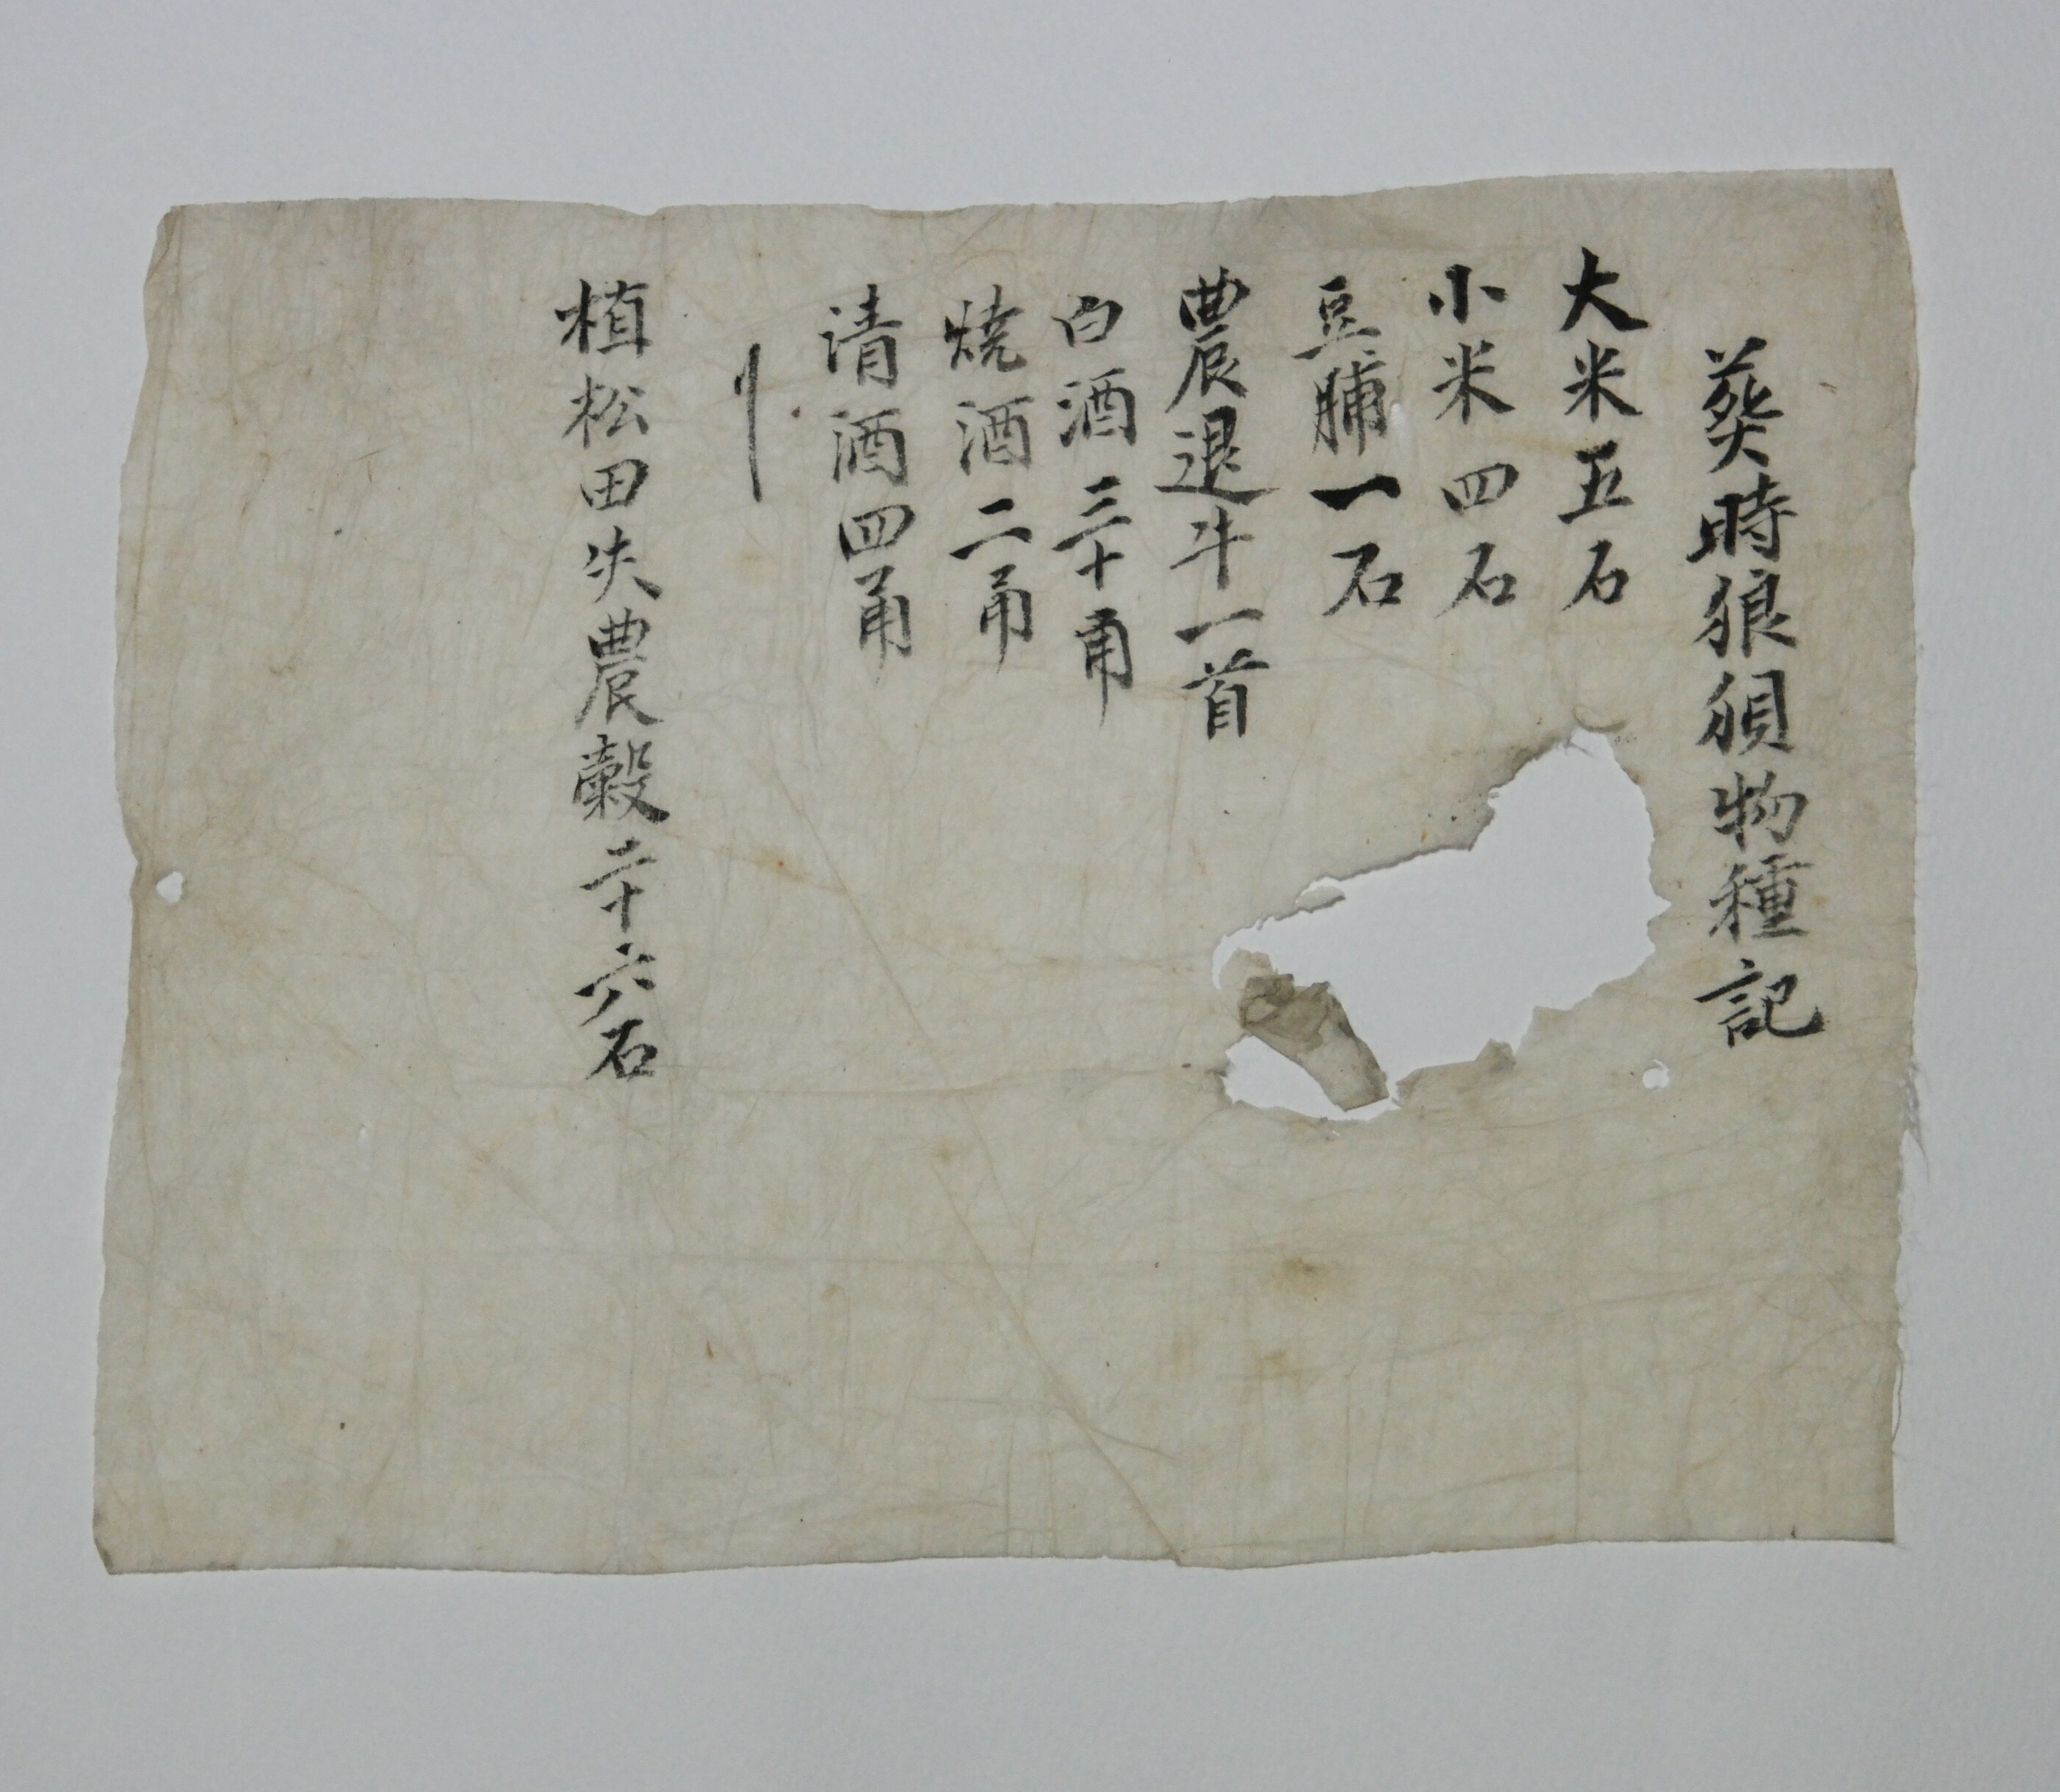 葬時狼狽物種記
大米五石
小米四石
豆脯一石
農退牛一首
白酒三十甬
燒酒二甬
清酒四甬
植松田失農穀二十六石